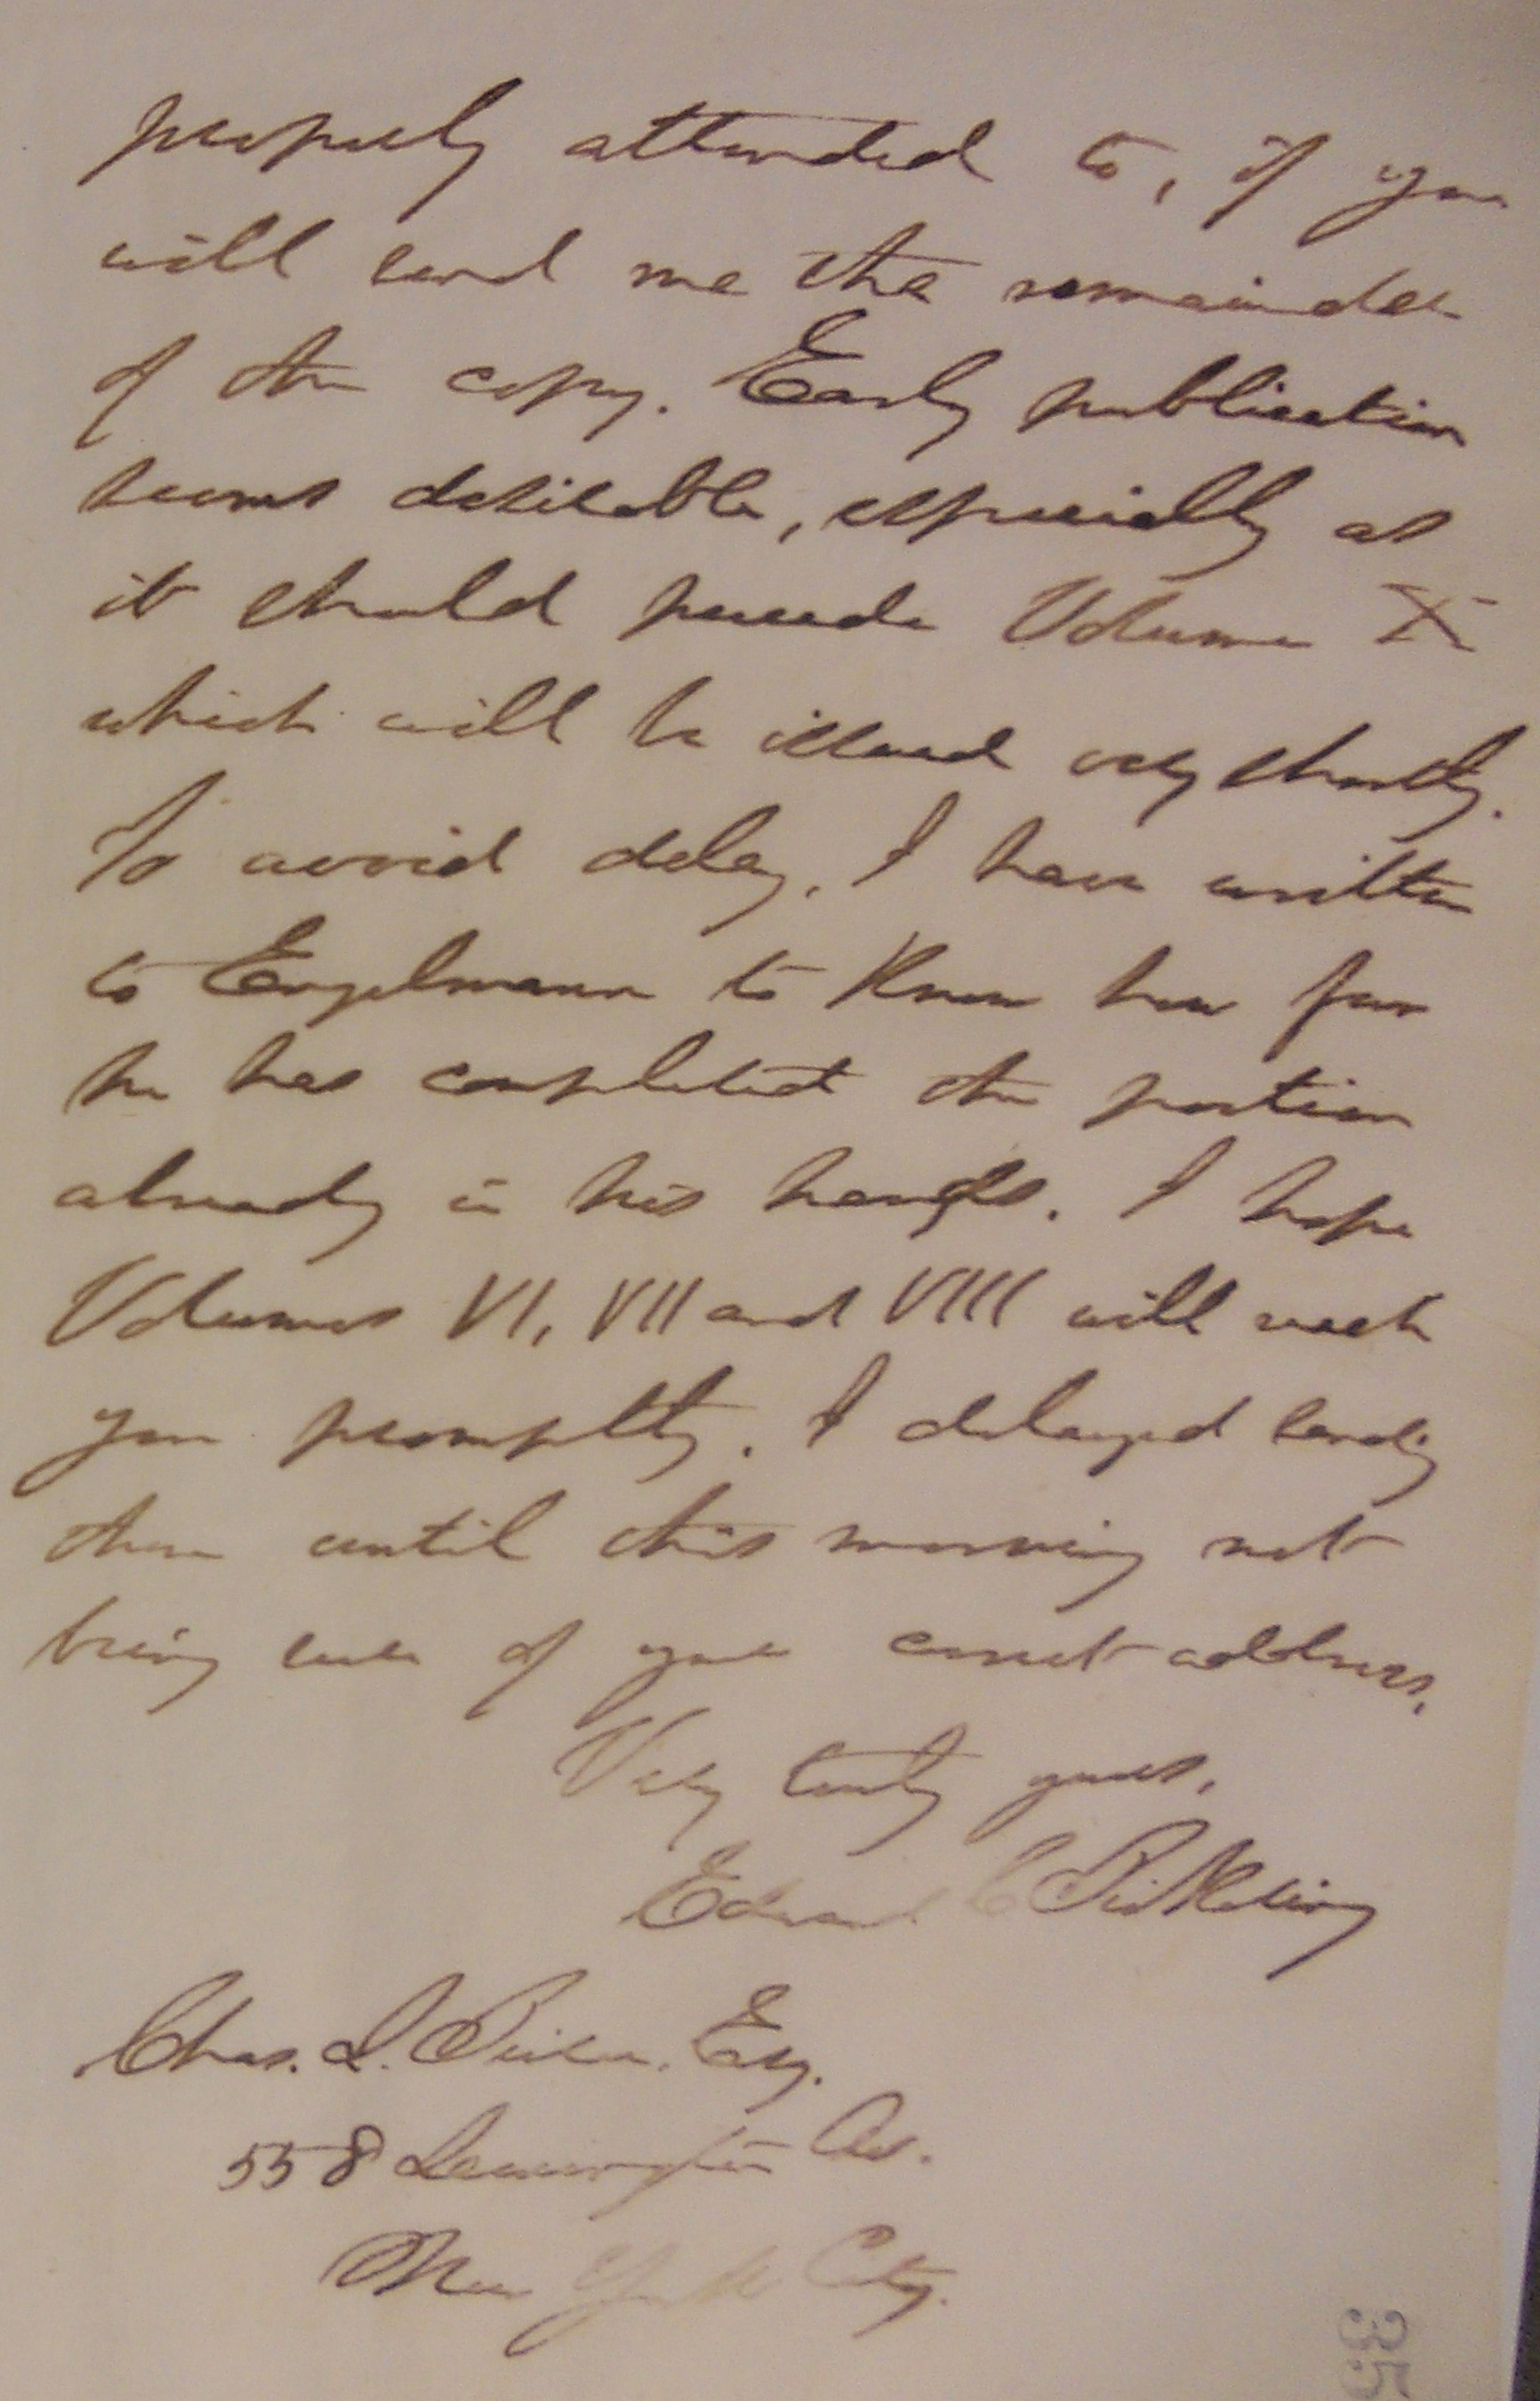 properly attended to, if you
will send me the remainder
of the copy. Early publication
seems desirable, especially as
it should precede Volume X
which will be issued very shortly.
To avoid delay, I have written
to Engelmann to know how far
he has completed the portion
already in his hands. I hope
Volumes VI, VII and VIII will reach
you promptly. I delayed sending
them until this morning not
being sure of your correct address.
Very truly yours,
Edward C Pickering
Chas. S. Peirce. Esq.
558 Lexington Av.
New York City.
35